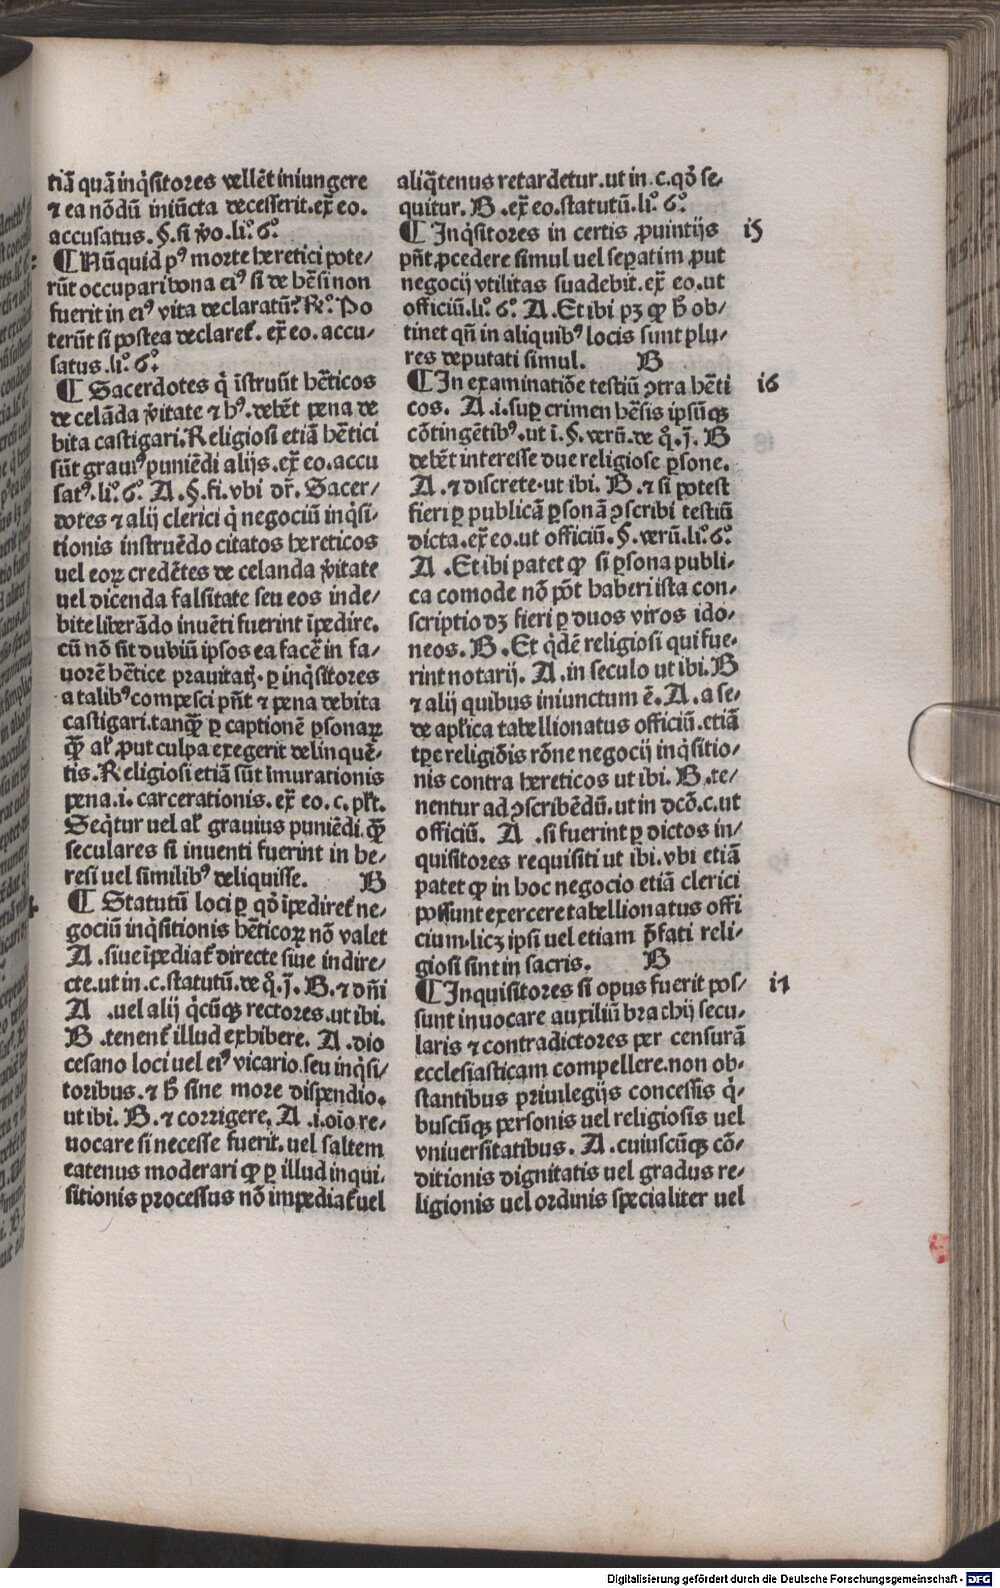 tiā quā inq̇sitores vellēt iniungere
⁊ ea nōdū iniūcta decesserit. ex̄ eo.
accusatus. §. si v̊o. li. 6.
¶ Nūquid pꝰ morte heretici pote⸗
rūt occupari bona eiꝰ si de hēsi non
fuerit in eiꝰ vita declaratū? Rͦ. Po
terūt si postea declareť. ex̄ eo. accu⸗
satus. liͦ. 6ͦ
¶ Sacerdotes q̇ īstruūt hēticos
de celāda v̊itate ⁊ hꝰ. debēt pena de
bita castigari. Religiosi etiā hētici
sūt grauiꝰ puniēdi alijs. ex̄ eo. accu
satꝰ. liͦ. 6ͦ. A. §. fi. vbi dr̄. Sacer⸗
dotes ⁊ alij clerici q̇ negociū inq̇si⸗
tionis instruēdo citatos hereticos
uel eoꝝ credētes de celanda v̊itate
uel dicenda falsitate seu eos inde⸗
bite liberādo inuēti fuerint īpedire.
cū nō sit dubiū ipsos ea facē in fa⸗
uorē hētice prauitatꝭ. ꝑ inq̇sitores
a talibꝰ compesci pn̄t ⁊ pena debita
castigari. tanqꝫ̄ ꝑ captionē ꝑsonaꝝ
qꝫ̄ al ꝓut culpa exegerit delinquē⸗
tis. Religiosi etiā sūt īmurationis
pena. i. carcerationis. ex̄ eo. c. pn̄t.
Seq̇tur uel al grauius puniēdi qꝫ̄
seculares si inuenti fuerint in he⸗
resi uel similibꝰ deliquisse. B
¶ Statutū loci ꝑ qō īpedireť ne⸗
gociū inq̇sitionis hēticoꝝ nō valet
A. siue īpediať directe siue indire⸗
cte. ut in. c. statutū. de q̊. j̄. B. ⁊ dn̄i
A .uel alij q̇cūqꝫ rectores. ut ibi.
B .tenenť illud exhibere. A. dio
cesano loci uel eiꝰ vicario. seu inq̇si⸗
toribus. ⁊ h̄ sine more dispendio.
ut ibi. B. ⁊ corrigere. A. i. oīo re⸗
uocare si necesse fuerit. uel saltem
eatenus moderari ꝙ ꝑ illud inqui⸗
sitionis processus nō impediať uel
aliq̄tenus retardetur. ut in. c. qō se⸗
quitur. B. ex̄ eo. statutū. liͦ. 6ͦ
¶ Inq̇sitores in certis ꝓuintijs 15
pn̄t ꝓcedere simul uel seꝑatim ꝓut
negocij vtilitas suadebit. ex̄ eo. ut
officiū. liͦ. 6ͦ. A. Et ibi pꝫ ꝙ h̄ ob⸗
tinet qn̄ in aliquibꝰ locis sunt plu⸗
res deputati simul. B
¶ In examinatiōe testiū ꝯtra hēti 16
cos. A. i. suꝑ crimen hēsis ipsūqꝫ
cōtingētibꝰ. ut ī. §. verū. de q̊. j̄. B
debēt interesse due religiose ꝑsone.
A. ⁊ discrete. ut ibi. B. ⁊ si potest
fieri ꝑ publicā ꝑsonā ꝯscribi testiū
dicta. ex̄ eo. ut officiū. §. verū. liͦ. 6ͦ
A .Et ibi patet ꝙ si ꝑsona publi⸗
ca comode nō pōt haberi ista con⸗
scriptio dꝫ fieri ꝑ duos viros ido⸗
neos. B. Et q̇dē religiosi qui fue⸗
rint notarij. A. in seculo ut ibi. B
⁊ alij quibus iniunctum ē. A. a se⸗
de aplica tabellionatus officiū. etiā
tꝑe religiōis rōne negocij inq̇sitio⸗
nis contra hereticos ut ibi. B. te⸗
nentur ad ꝯscribēdū. ut in dcō. c. ut
officiū. A .si fuerint ꝑ dictos in⸗
quisitores requisiti ut ibi. vbi etiā
patet ꝙ in hoc negocio etiā clerici
possunt exercere tabellionatus offi
cium. licꝫ ipsi uel etiam p̄fati reli⸗
giosi sint in sacris. B
¶ Inquisitores si opus fuerit pos⸗ 17
sunt inuocare auxiliū brachij secu⸗
laris ⁊ contradictores per censurā
ecclesiasticam compellere. non ob⸗
stantibus priuilegijs concessis q̇⸗
buscūqꝫ personis uel religiosis uel
vniuersitatibus. A. cuiuscūqꝫ cō⸗
ditionis dignitatis uel gradus re⸗
ligionis uel ordinis specialiter uel
Digitalisierung gefördert durch die Deutsche Forschungsgemeinschaft - DFG